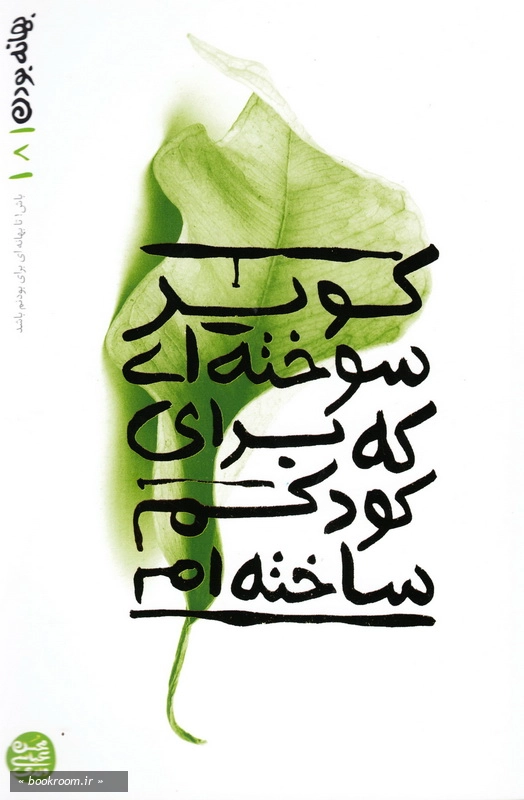 کویر
سوخته‌ای
که برای
کودکم
ساخته‌ام
بهانه بودن
۱۸۱
باش! تا بهانه ای برای بودنم باشد
« bookroom.ir »